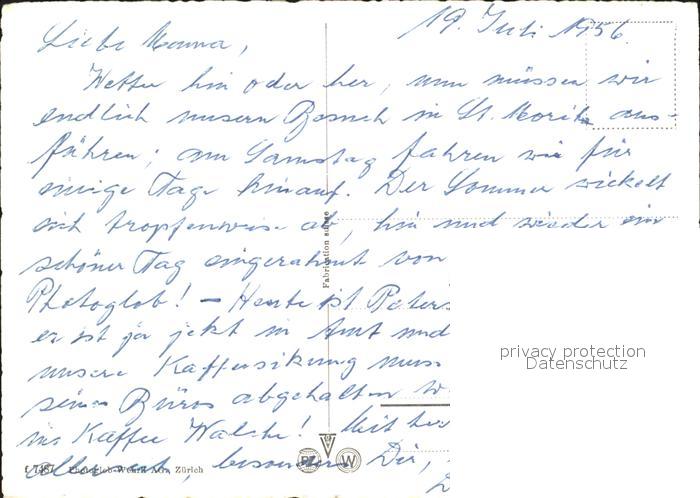 19. Juli 1956.
Liebe Mama,
Wetter hin oder her, nun müssen wir
endlich unsern Besuch in St. Moritz aus-
führen; am Samstag fahren wir für
einige Tage hinauf. Der Sommer wickelt
sich tropfenweise ab, hin und wieder ein
schöner Tag eingerahmt von
Photoglob! — Heute ist Peters
er ist ja jetzt in Amt und
unsere Kaffeesitzung muss
seines Büros abgehalten w
im Kaffee Walche! Mit he
alle, besonders Dir,
Fabrication suisse
Photoglob-Wehrli AG., Zürich
PZ W
privacy protection
Datenschutz